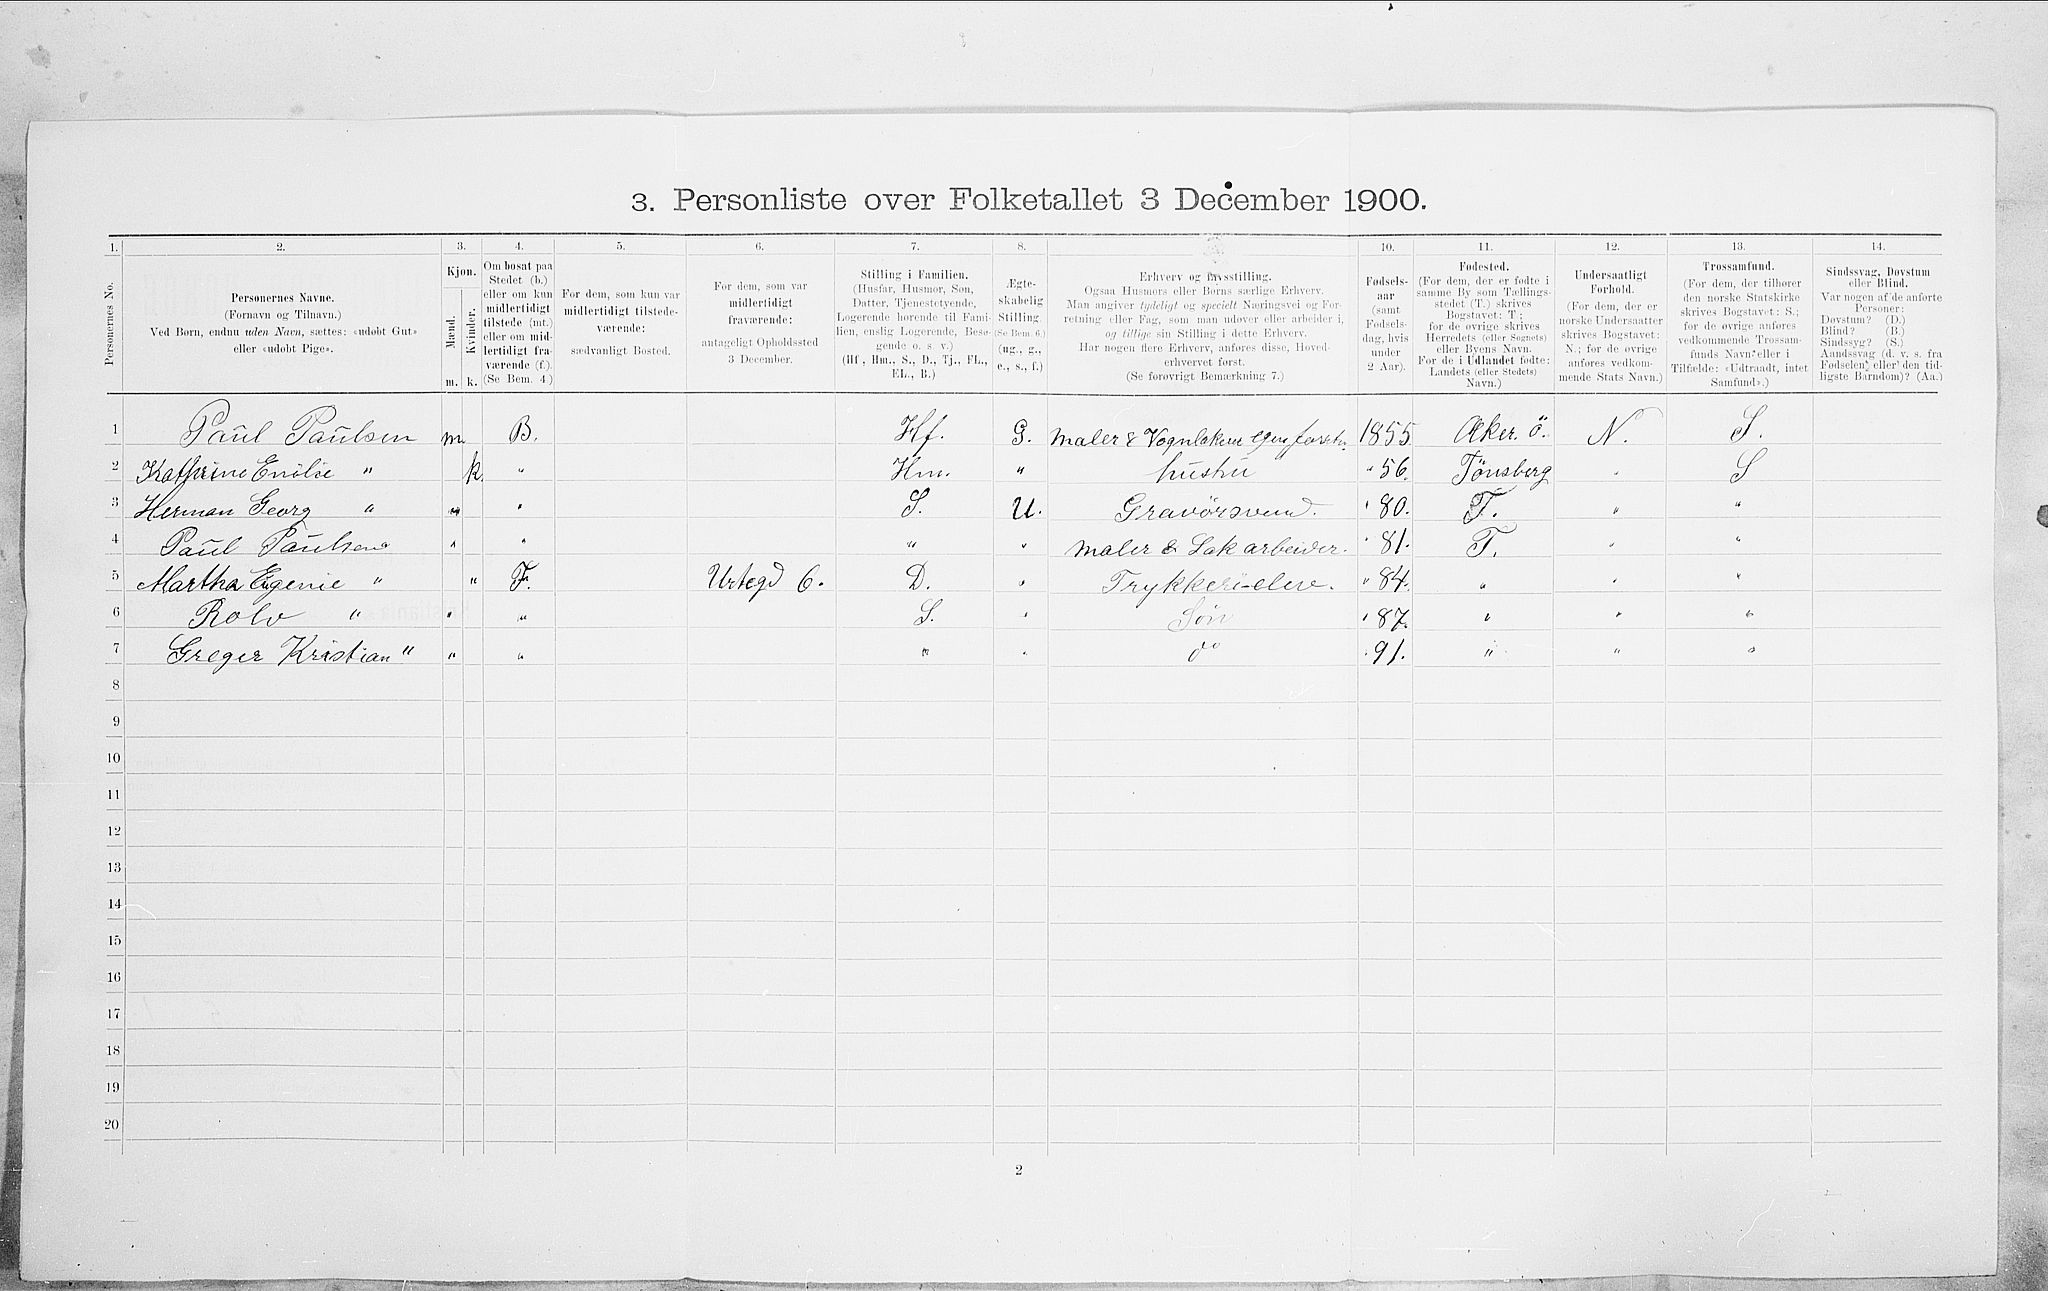 3. Personliste over Folketallet 3 December 1900.
1. 2. 3. 4. 5. 6. 7. 8. 9. 10. 11. 12. 13. 14.
Personernes No.
Personernes Navne.
(Fornavn og Tilnavn.)
Ved Børn, endnu uden Navn, sættes: «udøbt Gut»
eller «udøbt Pige».
Kjøn.
Mænd.
Kvinder.
m. k.
Om bosat paa
Stedet (b.)
eller om kun
midlertidigt
tilstede (mt.)
eller om mid-
lertidigt fra-
værende (f.).
(Se Bem. 4)
For dem, som kun var
midlertidigt tilstede-
værende:
sædvanligt Bosted.
For dem, som var
midlertidigt
fraværende:
antageligt Opholdssted
3 December.
Stilling i Familien.
(Husfar, Husmor, Søn,
Datter, Tjenestetyende,
Logerende hørende til Fami-
lien, enslig Logerende, Besø-
gende o. s. v.)
(Hf, Hm., S., D., Tj., FL.,
EL., B.)
Ægte-
skabelig
Stilling.
(Se Bem. 6.)
(ug., g.,
e., s., f.)
Erhverv og Livsstilling.
Ogsaa Husmors eller Børns særlige Erhverv.
Man angiver tydeligt og specielt Næringsvei og For-
retning eller Fag, som man udøver eller arbeider i,
og tillige sin Stilling i dette Erhverv.
Har nogen flere Erhverv, anføres disse, Hoved-
erhvervet først.
(Se forøvrigt Bemærkning 7.)
Fødsels-
aar
(samt
Fødsels-
dag, hvis
under
2 Aar).
Fødested.
(For dem, der er fødte i
samme By som Tællings-
stedet (T.) skrives
Bogstavet: T;
for de øvrige skrives
Herredets (eller Sognets)
eller Byens Navn.
For de i Udlandet fødte:
Landets (eller Stedets)
Navn.)
Undersaatligt
Forhold.
(For dem, der er
norske Undersaatter
skrives Bogstavet:
N.; for de øvrige
anføres vedkom-
mende Stats Navn.)
Trossamfund.
(For dem, der tilhører
den norske Statskirke
skrives Bogstavet: S.;
for de øvrige anføres
vedkommende Trossam-
funds Navn eller i
Tilfælde: «Udtraadt, intet
Samfund».)
Sindssvag, Døvstum
eller Blind.
Var nogen af de anførte
Personer:
Døvstum? (D.)
Blind? (B.)
Sindssyg? (S.)
Aandssvag (d. v. s. fra
Fødselen eller den tid-
ligste Barndom)? (Aa.)
1 Paul Paulsen m. B. Hf. G. Maler & 1855 Aker. ö. N. S.
2 Kathrine Emilie " k. " Hm. " hustru " 56. Tönsberg " S
3 Herman Georg " " " S. U. Gravörsvend. " 80. T. " "
4 Paul Paulsen " " " " Maler & Lakarbeider. " 81. T. " "
5 Martha Eugenie " " F. Urtegd 6. D. " Trykkeri-elev. " 84. " " "
6 Rolv " " " S. " Sön " 87. " " "
7 Greger Kristian " " " " " do " 91. " " "
8
9
10
11
12
13
14
15
16
17
18
19
20
2